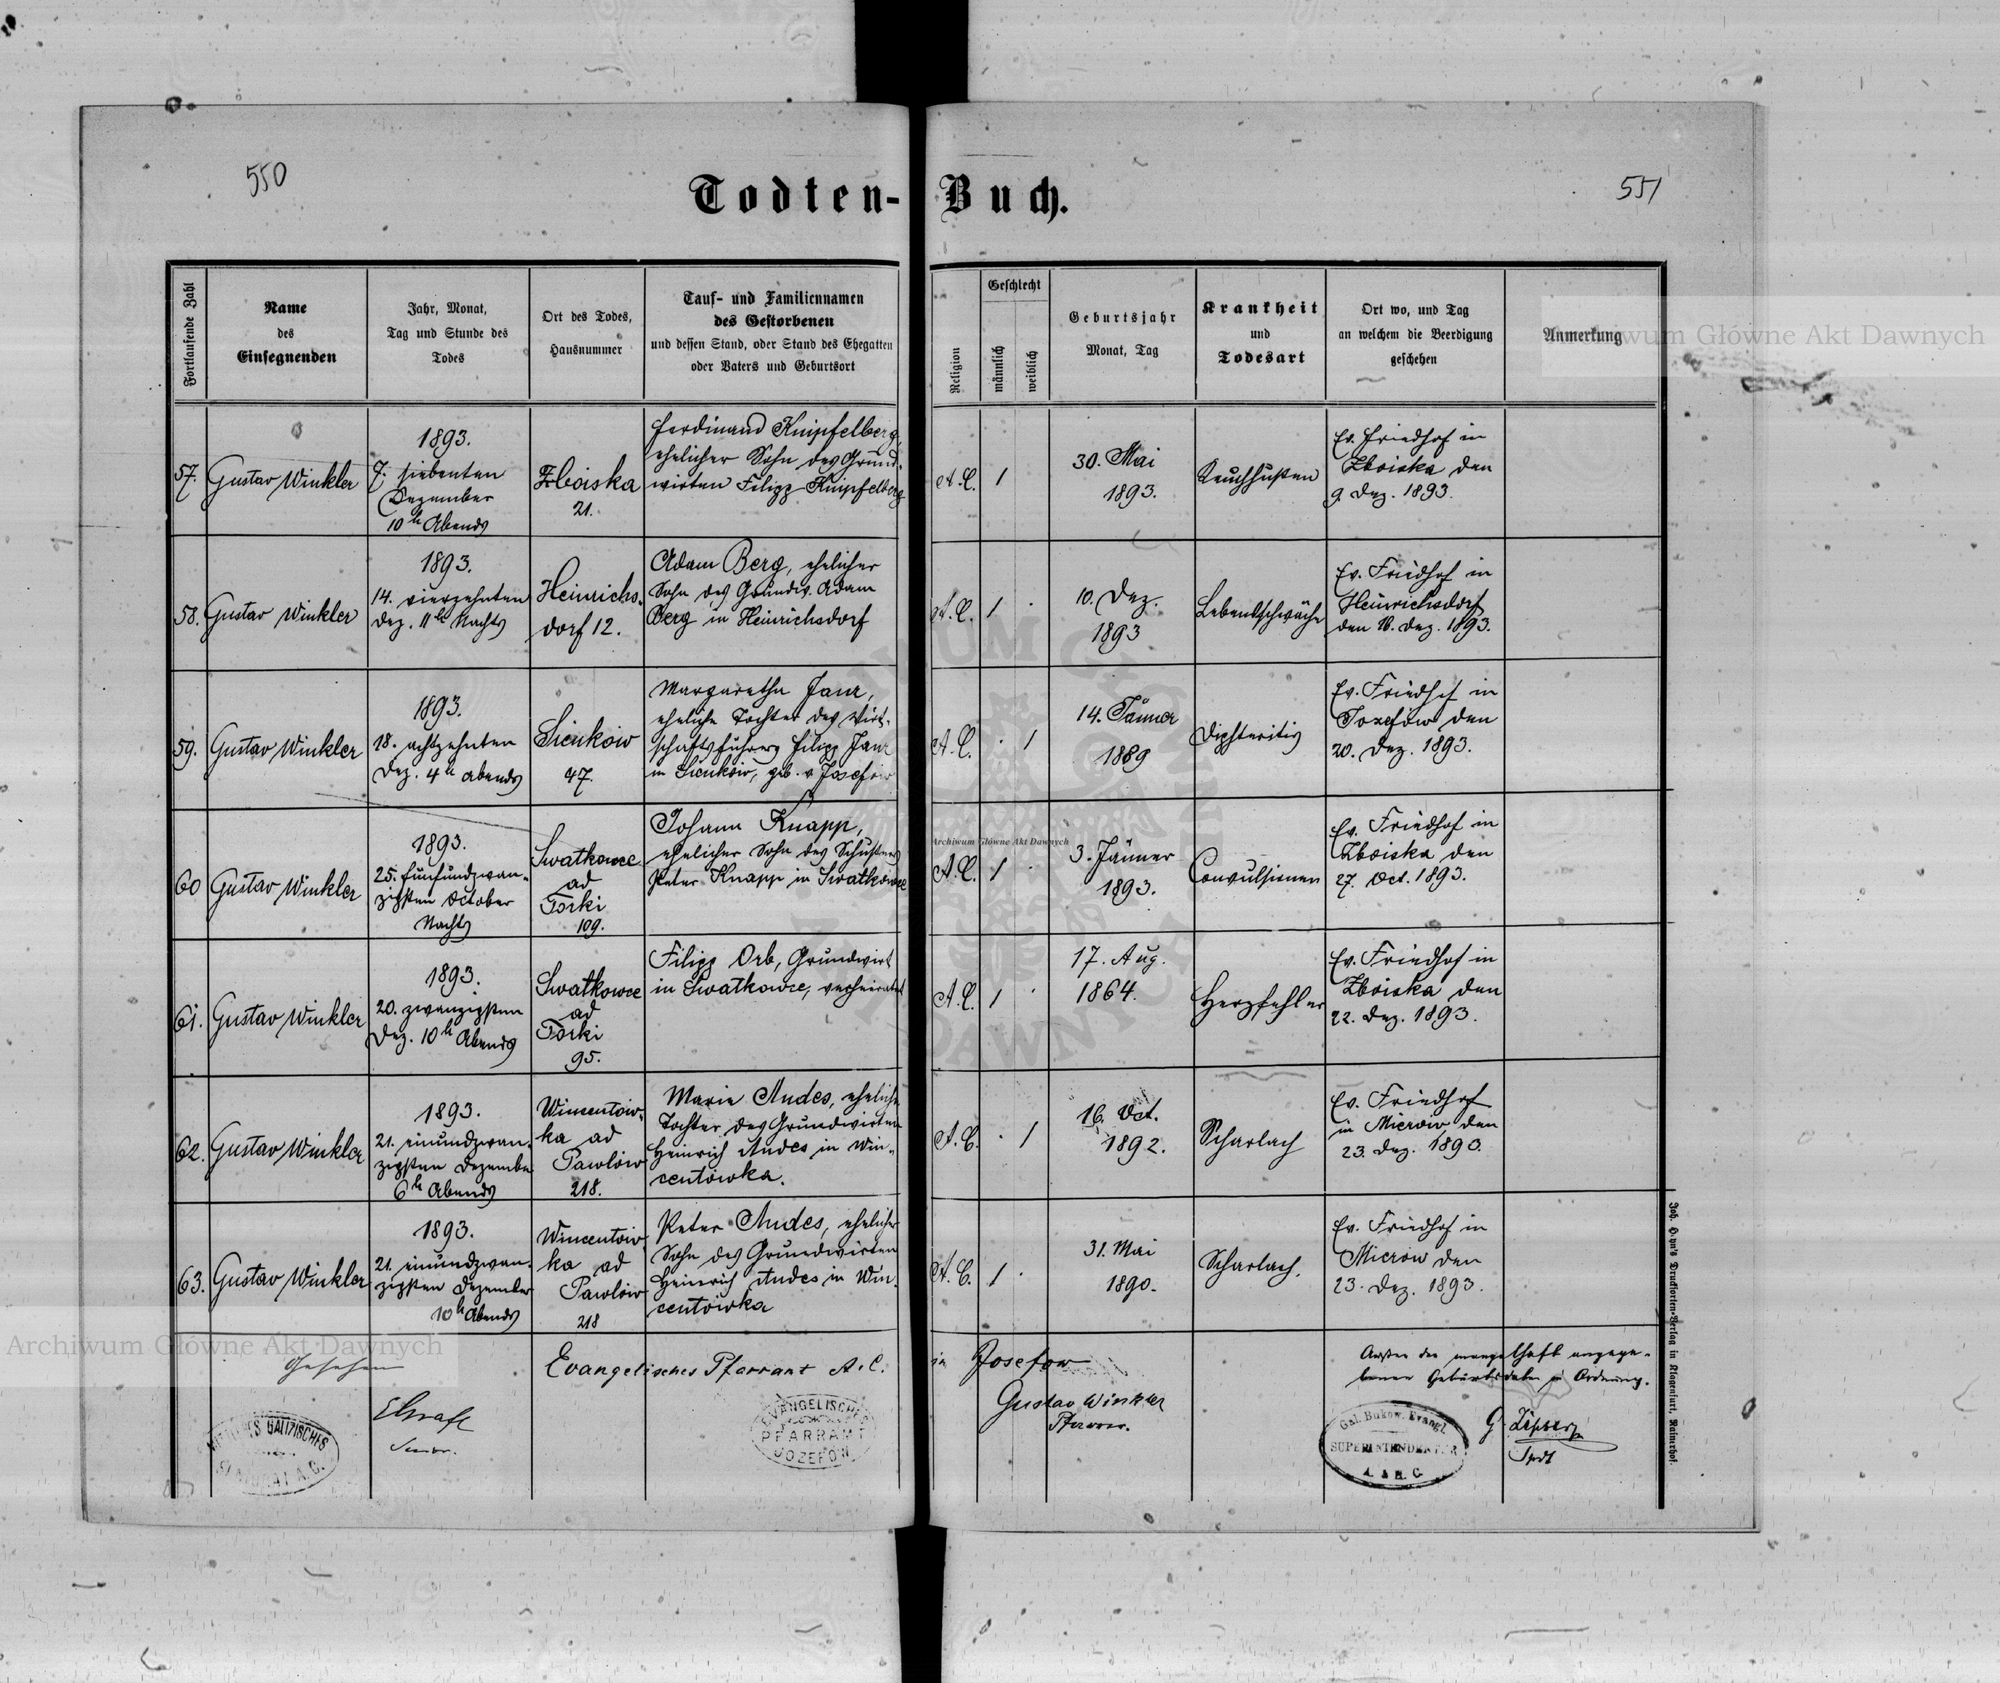 550
551
Todten-Buch.
Fortlaufende Zahl
Name
des
Einsegnenden
Jahr, Monat,
Tag und Stunde des
Todes
Ort des Todes,
Hausnummer
Tauf- und Familiennamen
des Gestorbenen
und dessen Stand, oder Stand des Ehegatten
oder Vaters und Geburtsort
Religion
Geschlecht
männlich
weiblich
Geburtsjahr
Monat, Tag
Krankheit
und
Todesart
Ort wo, und Tag
an welchem die Beerdigung
geschehen
Anmerkung
57.
Gustav Winkler
1893.
7. siebenten
Dezember
10h Abends
Zboiska
21.
Ferdinand Knipfelberg,
ehelicher Sohn des Grund-
wirten Filipp Knipfelberg
A.C.
1
30. Mai
1893.
Keuchhusten
Ev. Friedhof in
Zboiska den
9. Dez. 1893.
58.
Gustav Winkler
1893.
14. vierzehnten
Dez. 11h Nachts
Heinrichs-
dorf 12.
Adam Berg, ehelicher
Sohn des Grundw. Adam
Berg in Heinrichsdorf
A.C.
1
10. Dez.
1893
Lebensschwäche
Ev. Friedhof in
Heinrichsdorf
den 16. Dez. 1893.
59.
Gustav Winkler
1893.
18. achtzehnten
Dez. 4h Abends
Sienków
47.
Margaretha Janz,
eheliche Tochter des Wirt-
schaftsführers Filipp Janz
in Sienków, geb. v Josefow
A.C.
1
14. Jänner
1889
Diphteritis
Ev. Friedhof in
Jozefów den
20. Dez. 1893.
60
Gustav Winkler
1893.
25. fünfundzwan-
zigsten October
Nachts
Swatkowce
ad
Torki
109.
Johann Knapp,
ehelicher Sohn des Schusters
Peter Knapp in Swatkowce
A.C.
1
3. Jänner
1893.
Convulsionen
Ev. Friedhof in
Zboiska den
27. Oct. 1893.
61.
Gustav Winkler
1893.
20. zwanzigsten
Dez. 10h Abends
Swatkowce
ad
Torki
95.
Filipp Orb, Grundwirt
in Swatkowce, verheiratet
A.C.
1
17. Aug.
1864.
Herzfehler
Ev. Friedhof in
Zboiska den
22. Dez. 1893.
62.
Gustav Winkler
1893.
21. einundzwan-
zigsten Dezember
6h Abends
Wincentów-
ka ad
Pawlów
218.
Marie Andes, eheliche
Tochter des Grundwirten
Heinrich Andes in Win-
centówka.
A.C.
1
16. Oct.
1892.
Scharlach
Ev. Friedhof
in Mierów den
23. Dez. 1893.
63.
Gustav Winkler
1893.
21. einundzwan-
zigsten Dezember
10h Abends
Wincentów-
ka ad
Pawlów
218
Peter Andes, ehelicher
Sohn des Grundwirten
Heinrich Andes in Win-
centówka
A.C.
1
31. Mai
1890.
Scharlach.
Ev. Friedhof in
Mierów den
23. Dez. 1893.
Gesehen
Senior.
Evangelisches Pfarramt A.C. in Josefow
Gustav Winkler
Pfarrer.
EVANGELISCHES
PFARRAMT
JOZEFÓW
Ausser den mangelhaft angege-
benen Geburtsdaten in Ordnung.
Gal. Bukow. Evangl.
SUPERINTENDENTUR
A. & H. C.
Joh. Heyn's Drucksorten-Verlag in Klagenfurt, Rainerhof.
Archiwum Główne Akt Dawnych
Archiwum Główne Akt Dawnych
Archiwum Główne Akt Dawnych